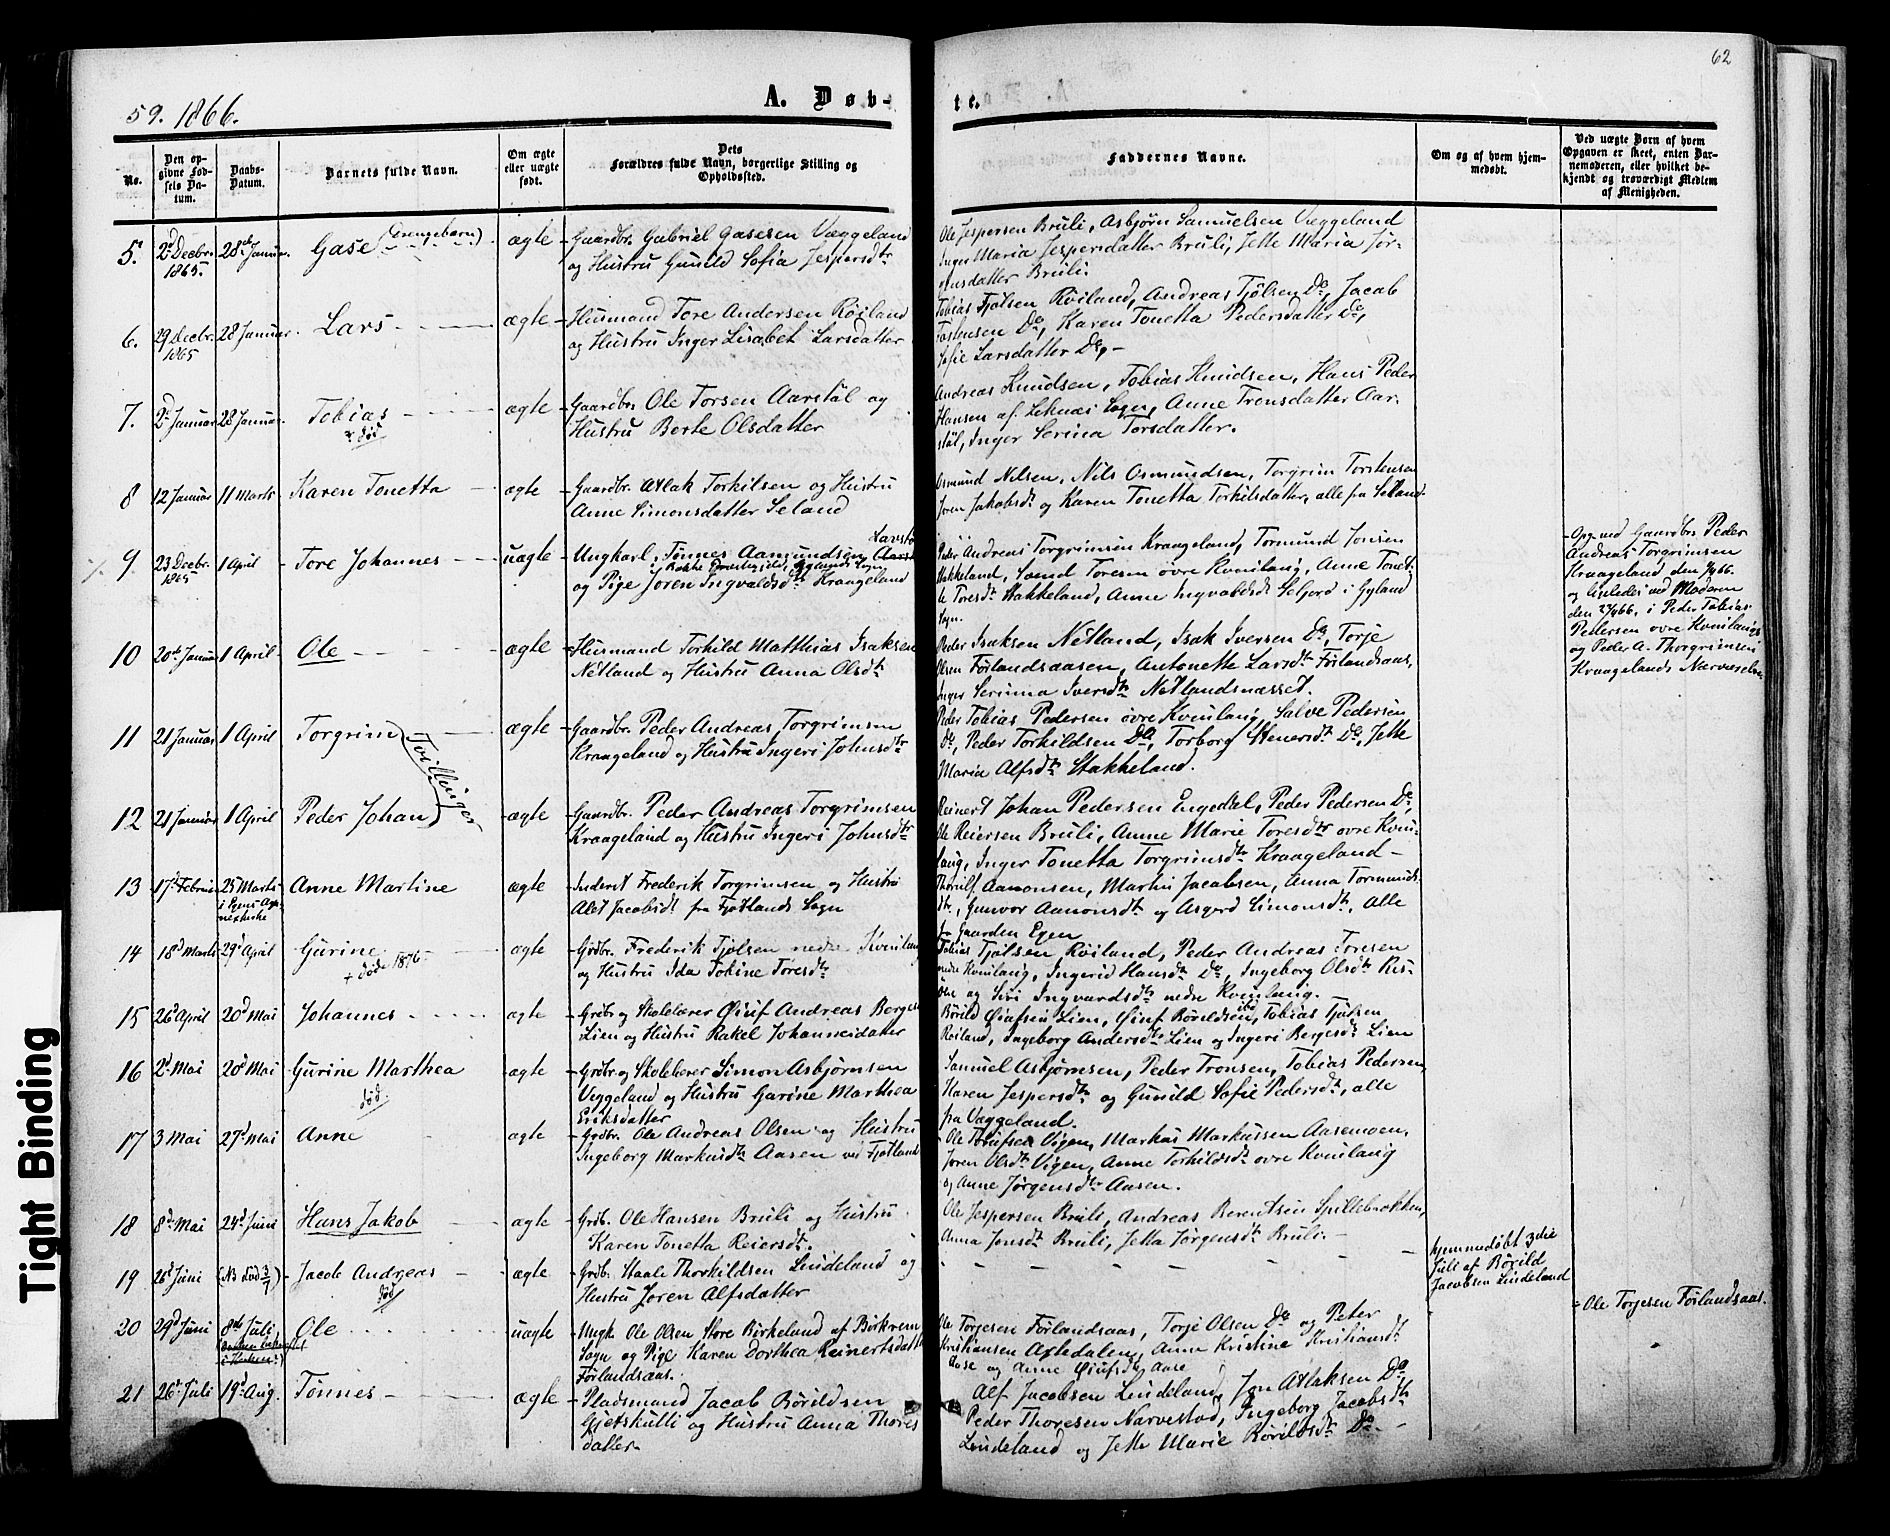 62
59. 1866.
A. Døb-
te.
No.
Den op-
givne Fød-
sels Da-
tum.
Daabs-
Datum.
Barnets fulde Navn.
Om ægte
eller uægte
født.
Dets
Forældres fulde Navn, borgerlige Stilling og
Opholdssted.
Faddernes Navne.
Om og af hvem hjem-
medøbt.
Ved uægte Børn af hvem
Opgaven er skeet, enten Bar-
nemoderen, eller hvilket be-
kjendt og troværdigt Medlem
af Menigheden.
5. 2d Decbr. 1865. 28de Januar. Gase (Drengebarn) ægte
Gaardbr. Gabriel Gasesen Væggeland
og Hustru Gunild Sofia Jespersdtr
Ole Jespersen Bruli, Asbjørn Samuelsen Væggeland
Inger Maria Jespersdatter Bruli, Jette Maria Jør-
gensdatter Bruli.
6. 29 Decbr. 1865 28 Januar. Lars ægte
Husmand Tore Andersen Røiland
og Hustru Inger Lisabet Larsdatter
Tobias Fjølsen Røiland, Andreas Tjølsen Do, Jacob
Tostensen Do, Karen Tonetta Pedersdatter Do,
Sofie Larsdatter Do,
7. 2d Januar 28 Januar. Tobias + død ægte
Gaardbr Ole Torsen Aarstøl og
Hustru Berte Olsdatter
Andreas Knudsen, Tobias Knudsen, Hans Peder
Hansen af Leknæs Sogn, Anne Tronsdatter Aar-
støl, Inger Serina Torsdatter.
8 12 Januar 11 Marts Karen Tonetta ægte
Gaardbr. Atlak Torkilsen og Hustru
Anne Simonsdatter Seland
Osmund Nilsen, Nils Osmundsen, Torgrim Torstensen
Joren Jakobsdt og Karen Tonetta Torkilsdatter, alle fra Seland
9 23 Decbr. 1865 1 April Tore Johannes uægte
Ungkarl Tønnes Aamundsen
og Pige Joren Ingvaldsdtr Kraageland
Peder Andreas Torgrimsen Kraageland, Tormund Jonsen
Stakkeland, Svend Toresen øvre Kvinlaug, Anne Tonet-
te Toresdt Stakkeland, Anne Ingvaldsdt Seljord i Gyland
Sogn.
Opg. ved Gaardbr Peder
Andreas Torgrimsen
Kraageland, den 1/4 66.
og ligeledes ved Moderen
den 2/4 66. i Peder Tobias
Pedersen øvre Kvinlaugs
og Peder A. Thorgrimsen
Kraagelands Nærværelse
10 20de Januar 1 April Ole ægte
Husmand Torkild Matthias Isaksen
Netland og Hustru Anna Olsdt
Peder Isaksen Netland, Isak Iversen Do, Torje
Olsen Førlandsaasen, Antonette Larsdt Førlandsaas,
Inger Serinna Iversdtr Netlandsnæsset.
11 21 Januar 1 April Torgrim ægte
Gaardbr. Peder Andreas Torgrimsen
Kraageland og Hustru Ingeri Johnsdtr
Peder Tobias Pedersen øvre Kvinlaug, Salve Pedersen
Do, Peder Torkildsen Do, Torborg Stenersdt Do, Jette
Maria Alfsdt Stakkeland.
Tvillinger
12 21 Januar 1 April Peder Johan ægte
Gaardbr. Peder Andreas Torgrimsen
Kraageland og Hustru Ingeri Johnsdtr
Reinert Johan Pedersen Engedal, Peder Pedersen Do,
Ole Reiersen Bruli, Anne Marie Toresdtr øvre Kvin-
laug, Inger Tonetta Torgrimsdt Kraageland
13 17d Februar 25 Marts Anne Martine ægte
Inderst Frederik Torgrimsen og Hustru
Alet Jacobsdt fra Fjotlands Sogn
Thorulf Aamonsen, Martin Jacobsen, Anna Tormunds-
dtr, Gunvor Aamonsdt og Asgerd Simonsdt, alle
fra Gaarden Egen
14 18d Marts 29d April Gurine + død 1876 ægte
Grdbr. Frederik Tjølsen nedre Kvinlaug
og Hustru Ida Tobine Toresdtr
Tobias Tjølsen Røiland, Peder Andreas Toresen
nedre Kvinlaug, Ingerid Hansdt Do, Ingeborg Olsdt Ris-
øne og Siri Ingvardsdt nedre Kvinlaug.
15 26d April 20d Mai Johannes ægte
Grdbr og Skolelærer Gjruf Andreas Borgen
Lien og Hustru Rakel Johannesdatter
Børild Gjrufsen Lien, Gjruf Børildsen ibd, Tobias Tjølsen
Røiland, Ingeborg Andersdtr Lien og Ingeri Bergesdt Lien
16 2d Mai 20d Mai Gurine Marthea død. ægte
Grdbr og Skolelærer Simon Asbjørnsen
Veggeland og Hustru Garine Marthea
Eriksdatter
Samuel Asbjørnsen, Peder Tronsen, Tobias Pedersen,
Karen Jespersdt og Gunild Sofie Pedersdt, alle
fra Væggeland.
17 3 Mai 27d Mai Anne ægte
Grdbr. Ole Andreas Olsen og Hustru
Ingeborg Markusdtr Aasen ved Fjotland
Ole Vigen, Markus Markussen Aasemoen,
Joren Olsdt Vigen, Anne Torkildsdt øvre Kvinlaug
og Anne Jørgensdtr Aasen.
18 8d Mai 24d Juni Hans Jakob ægte
Grdb. Ole Hansen Bruli og Hustru
Karen Tonetta Reiersdt.
Ole Jespersen Bruli, Andreas Berentsen Spillebrokken,
Anna Jonsdt Bruli, Jetta Jørgensdt Bruli.
19 26d Juni (No død 3/7) Jacob Andreas død ægte
Grdb. Staale Thorkildsen Lindeland og
Hustru Joren Alfsdatter
hjemmedøbt 3die
Juli af Børild
Jacobsen Lindeland
20 29d Juni 8de Juli Ole uægte
Ungk Ole Olsen Store Birkeland af Birkrem
Sogn og Pige Karen Dorthea Reinertsdatter
Førlandsaas.
Ole Torjesen Førlandsaas, Torje Olsen Do og Peter
Kristiansen Axledalen, Anne Kristine Kristiansdt
Aase og Anne Gjrufsdt Aase
Ole Torjesen Førlandsaas.
21 26d Juli 19d Aug. Tønnes ægte
Pladsmand Jacob Børildsen
Gjetskulli og Hustru Anna Thores
datter.
Alf Jacobsen Lindeland, Jon Atlaksen Do
Peder Thoresen Narvestad, Ingeborg Jacobsdt
Lindeland og Jette Marie Børildsdt Do
Tight Binding